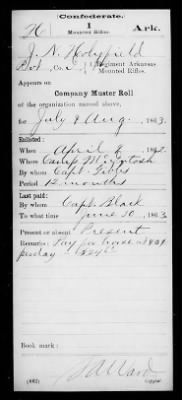 Confederate.
H 1 Ark.
Mounted Rifles.
J. N. Holyfield
Co. , 1 Regiment Arkansas
Mounted Rifles.
Appears on
Company Muster Roll
of the organization named above,
for July & Aug, 1863.
Enlisted:
When April 8, 186
Where Camp McIntosh
By whom Capt.
Period 12 months
Last paid:
By whom Capt. Black
To what time June 30, 1863
Present or absent Present
Remarks: Pay for horse at 40¢
per day
Book mark:
(642) Copyist.